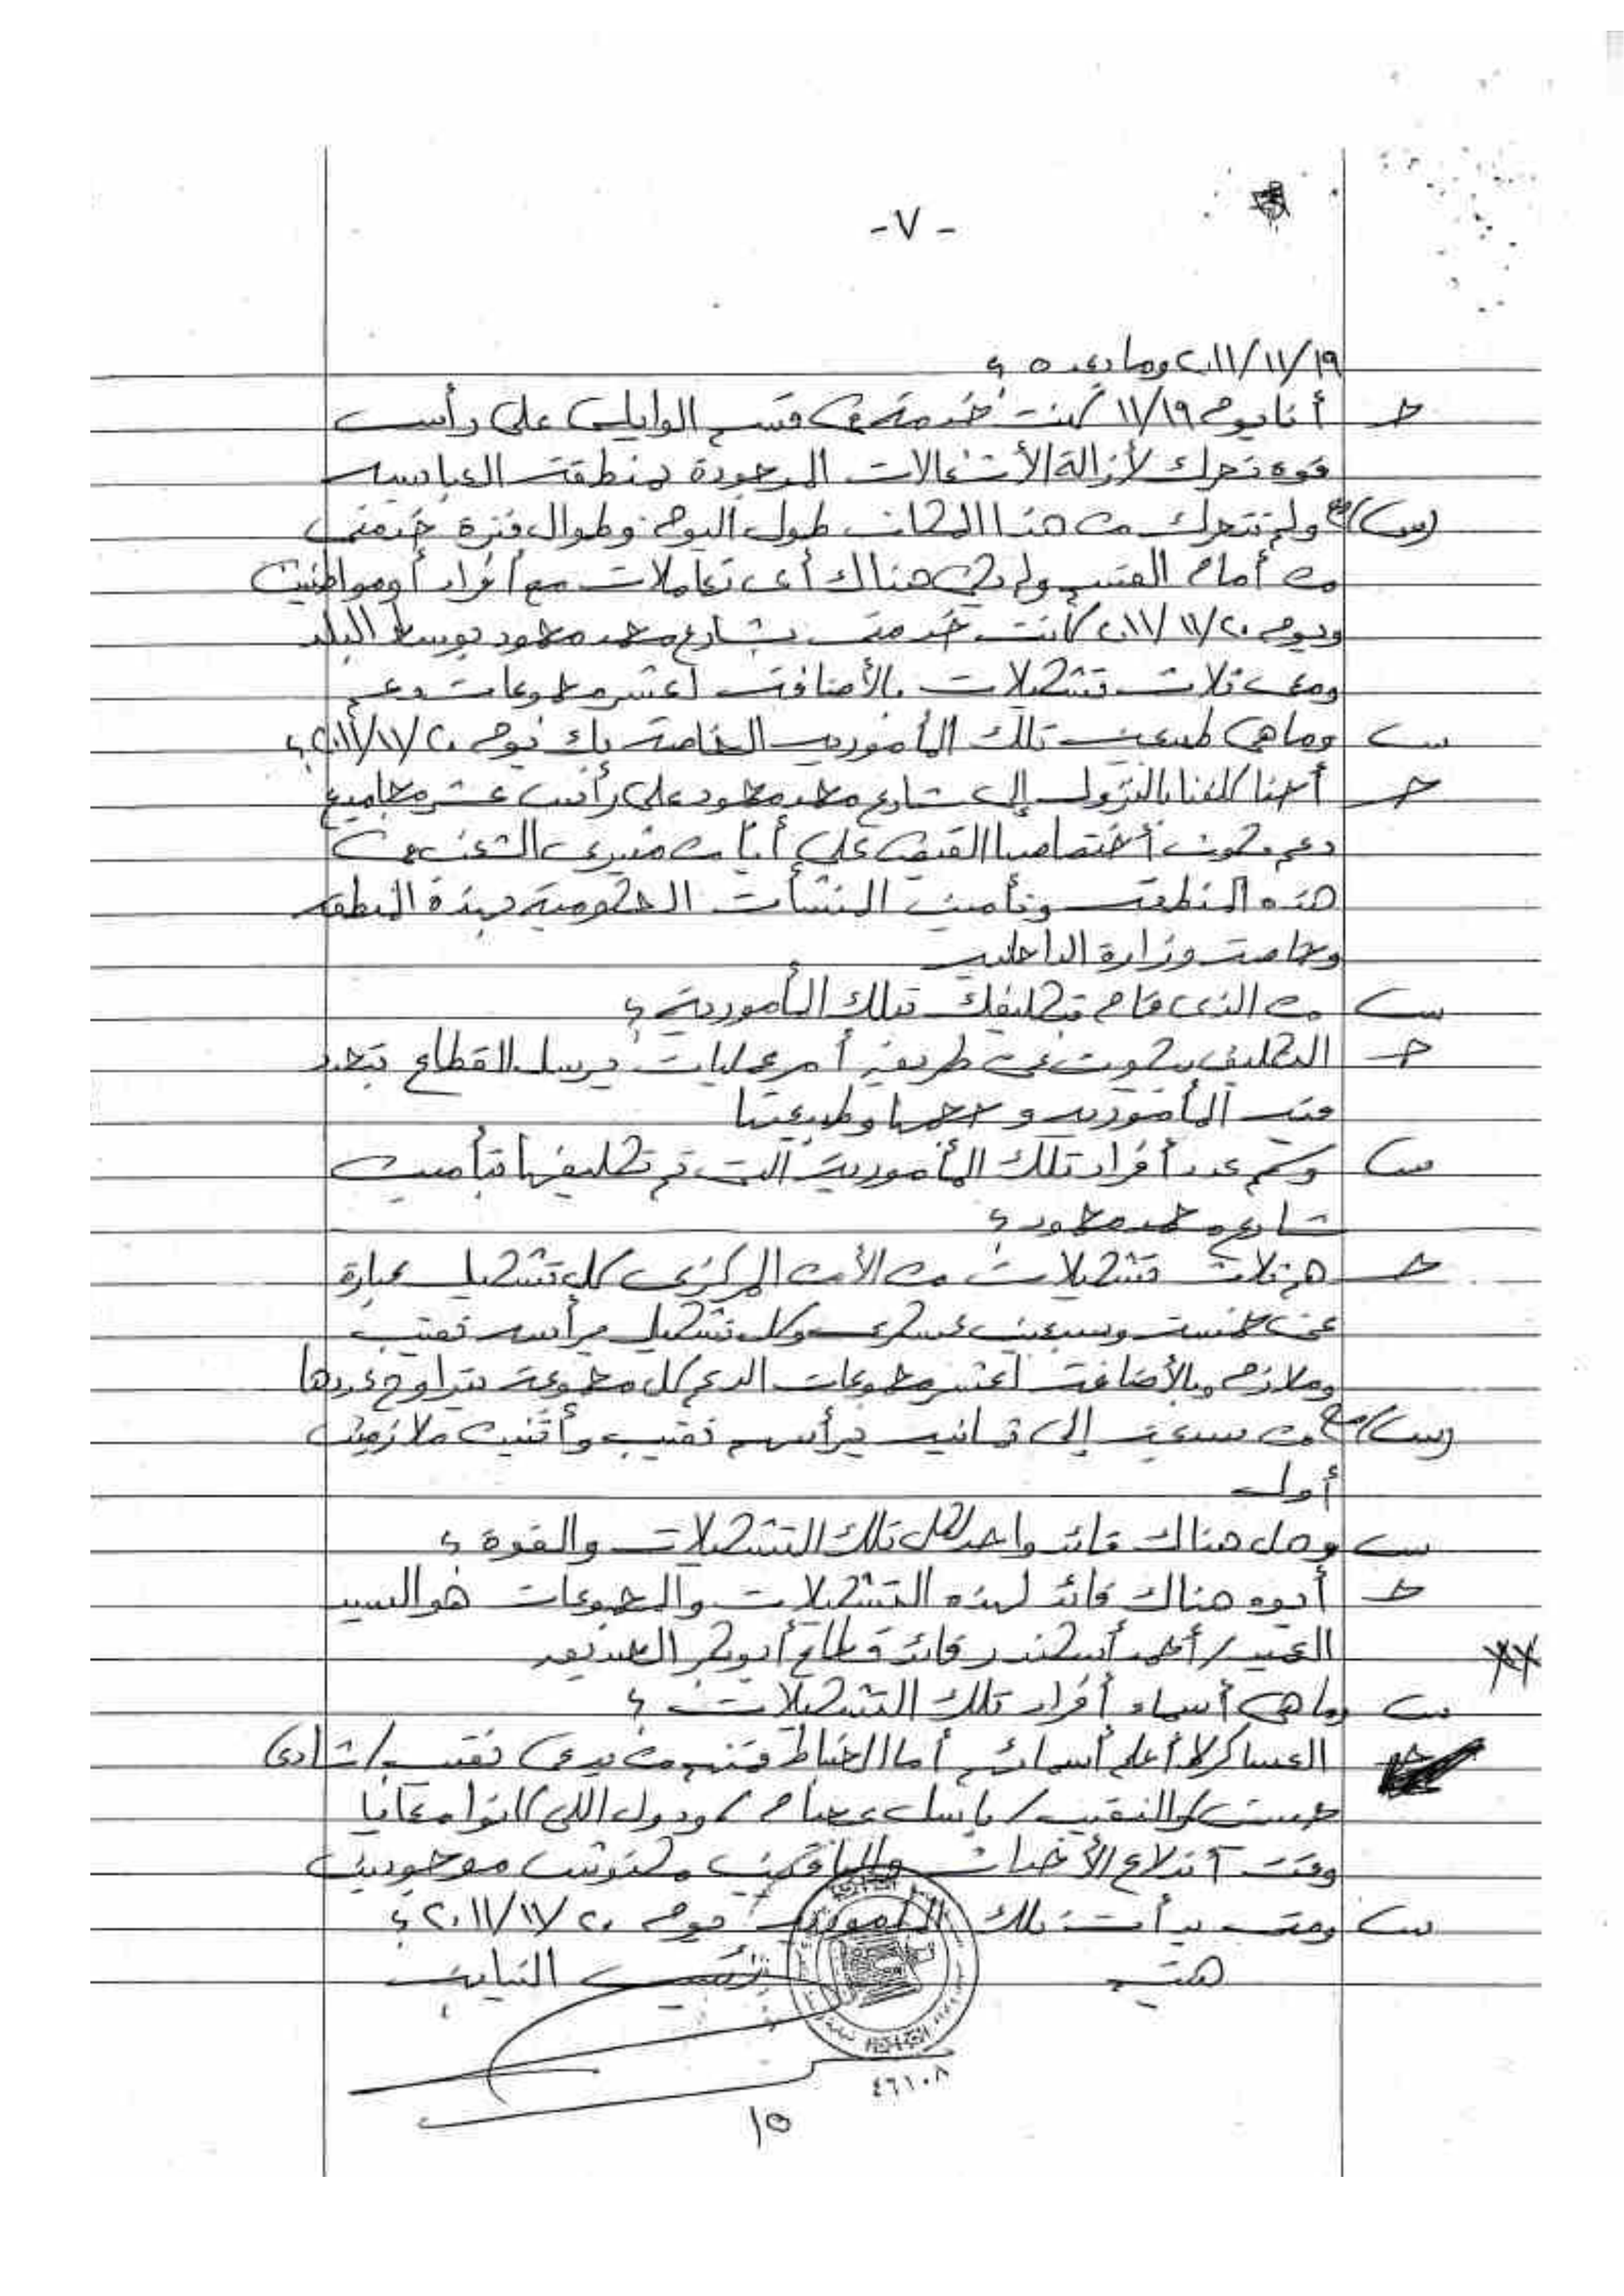 - ٧ -
٢٠١١/١١/١٩ وما بعده ؟
ج أنا يوم ١١/١٩ كنت خدمة فى قسم الوايلى على رأس
قوة تحرك لأزالة الأشغالات الموجودة بمنطقة العباسيه
(س/ع) ولم نتحرك من هذا المكان طول اليوم وطوال فترة خدمتى
من أمام القسم ولم يكن هناك أى تعاملات مع أفراد أو مواطنين
ويوم ٢٠١١/١١/٢٠ كانت خدمتى بشارع محمد محمود بوسط البلد
ومعى ثلاث تشكيلات بالأضافة لعشر مجموعات دعم
س وما هى طبيعة تلك المأموريه الخاصة بك يوم ٢٠١١/١١/٢٠ ؟
ج أحنا كلفنا بالنزول إلى شارع محمد محمود على رأس عشر مجاميع
دعم يكون أختصاصها القبض على أياً من مثيرى الشغب من
هذه المنطقة وتأمين المنشأت الحكومية بهذة المنطقه
وخاصة وزارة الداخليه
س من الذى قام بتكليفك بتلك المأمورية ؟
ج التكليف بيكون عن طريق أمر عمليات يرسل للقطاع بتحدد
فيه المأموريه وحجمها وطبيعتها
س وكم عدد أفراد تلك المأمورية التى تم تكليفها بتأمين
شارع محمد محمود ؟
ج هم ثلاث تشكيلات من الأمن المركزى كل تشكيل عبارة
عن خمسة وسبعين عسكرى وكل تشكيل يرأسه نقيب
وملازم وبالأضافة لعشر مجموعات الدعم كل مجموعة يتراوح عددها
(س/ع) من سبعة إلى ثمانيه يرأسهم نقيب وأثنين ملازمين
أول
س وهل هناك قائد واحد لكل تلك التشكيلات والقوة ؟
ج أيوه هناك قائد لهذه التشكيلات والمجموعات هو السيد
العميد / أحمد أسكندر قائد قطاع أبوبكر الصديق
س وما هى أسماء أفراد تلك التشكيلات ؟
ج العساكر لا أعلم أسمائهم أما الضباط فمنهم من يدعى نقيب / شادى
حسنى والنقيب / باسل عصام / ودول اللى كانوا معايا
وقت أندلاع الأحداث والباقين مكنوش موجودين
س ومتى بدأت تلك المأمورية يوم ٢٠١١/١١/٢٠ ؟
رئيس النيابة
٤٦١٠٨
١٥